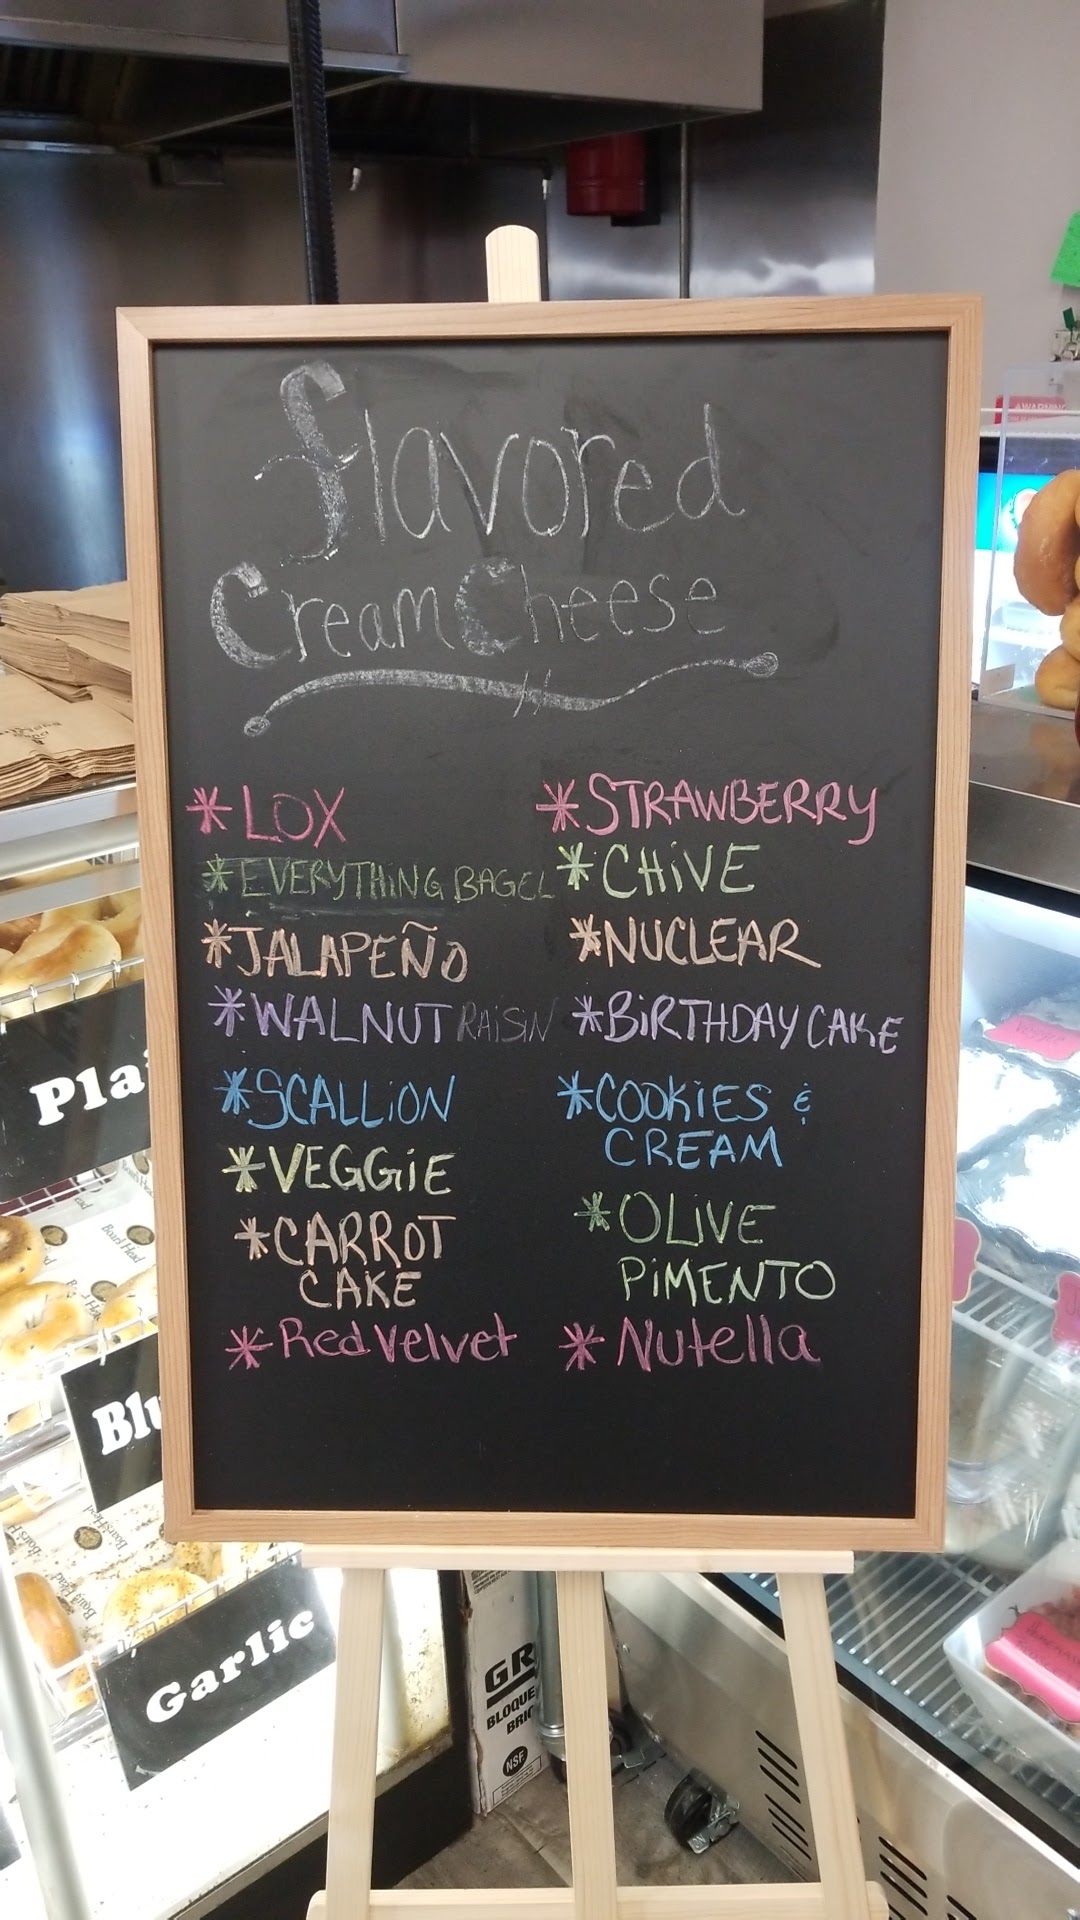 flavored
Cream Cheese
*LOX
*EVERYTHING BAGEL
*JALAPEÑO
*WALNUT RAISIN
*SCALLION
*VEGGIE
*CARROT
CAKE
*Red Velvet
*STRAWBERRY
*CHIVE
*NUCLEAR
*BIRTHDAY CAKE
*COOKIES &
CREAM
*OLIVE
PIMENTO
*Nutella
Garlic
Boar's Head
NSF
WARNING